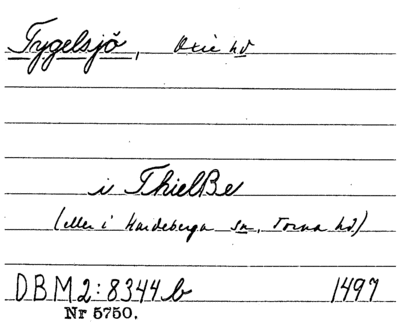 Tygelsjö, Oxie hd
i ThielBe
(eller i Hardeberga sn, Torna hd)
DBM2:8344b 1497
Nr 5750.